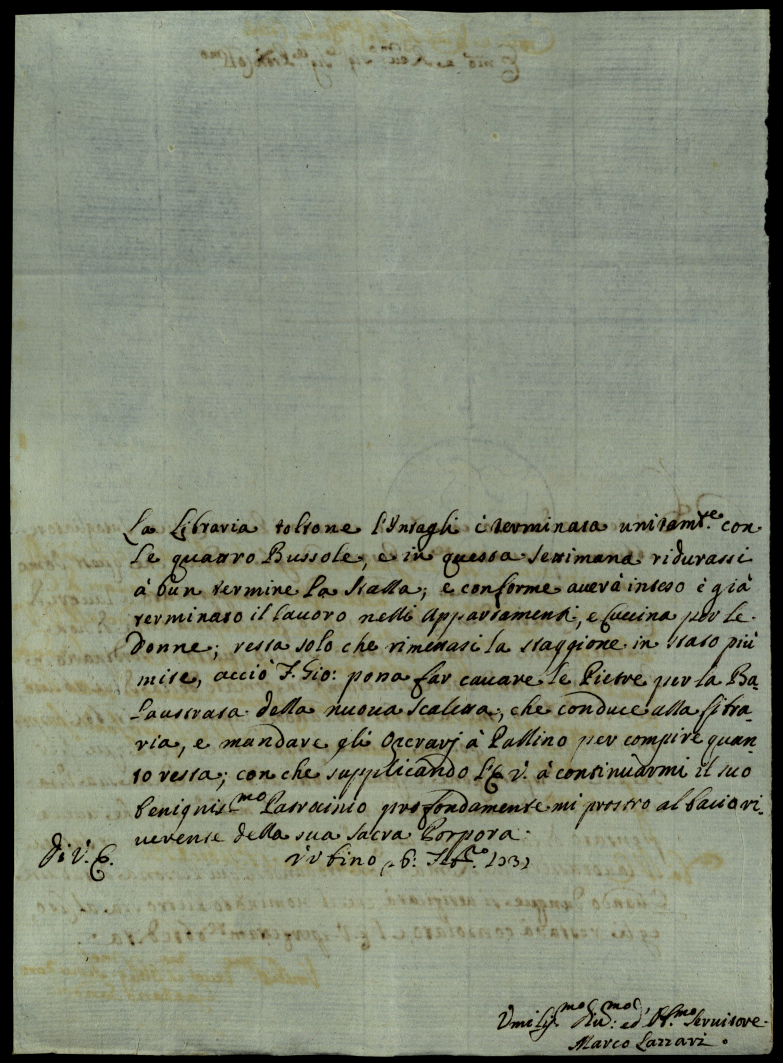 La Libraria toltone l'Intagli è terminata unitam.te con
le quattro Bussole, e in questa settimana ridurassi
à bun termine la Stalla; e conforme averà inteso è già
terminato il lavoro nelli Appartamenti, e Cuccina per le
donne; resta solo che rimettasi la staggione in stato più
mite, acciò F. Gio: possa far cavare le Pietre per la Ba=
laustrata della nuova scaletta, che conduce alla libra=
ria, e mandare gli Operarj à Pallino per compire quan=
to resta; con che supplicando l'E. V. à continuarmi il suo
benignis.mo Patrocinio profondamente mi prostro al bacio ri=
verente della sua sacra Porpora.
Di V. E.
Urbino 6: Feb.ro
Umiliss.mo Div.mo ed Obl.mo Servitore
Marco Lazzari.